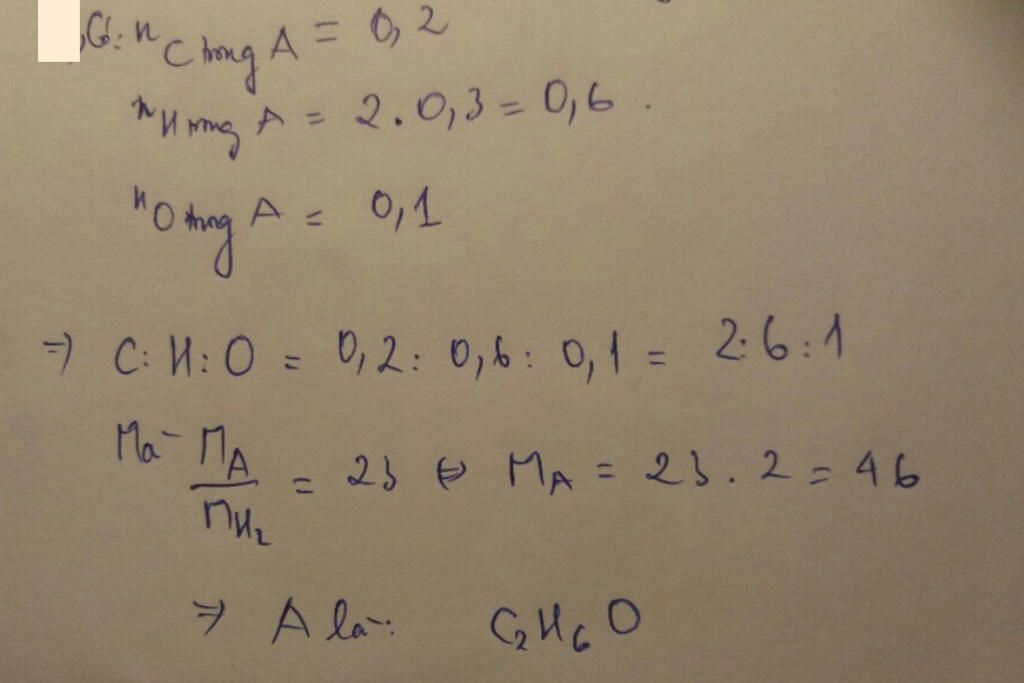 ,G: nC trong A = 0,2
nH trong A = 2.0,3 = 0,6.
nO trong A = 0,1
⇒ C:H:O = 0,2: 0,6: 0,1 = 2:6:1
Mà MA/MH2 = 23 ⇔ MA = 23.2 = 46
⇒ A là: C2H6O